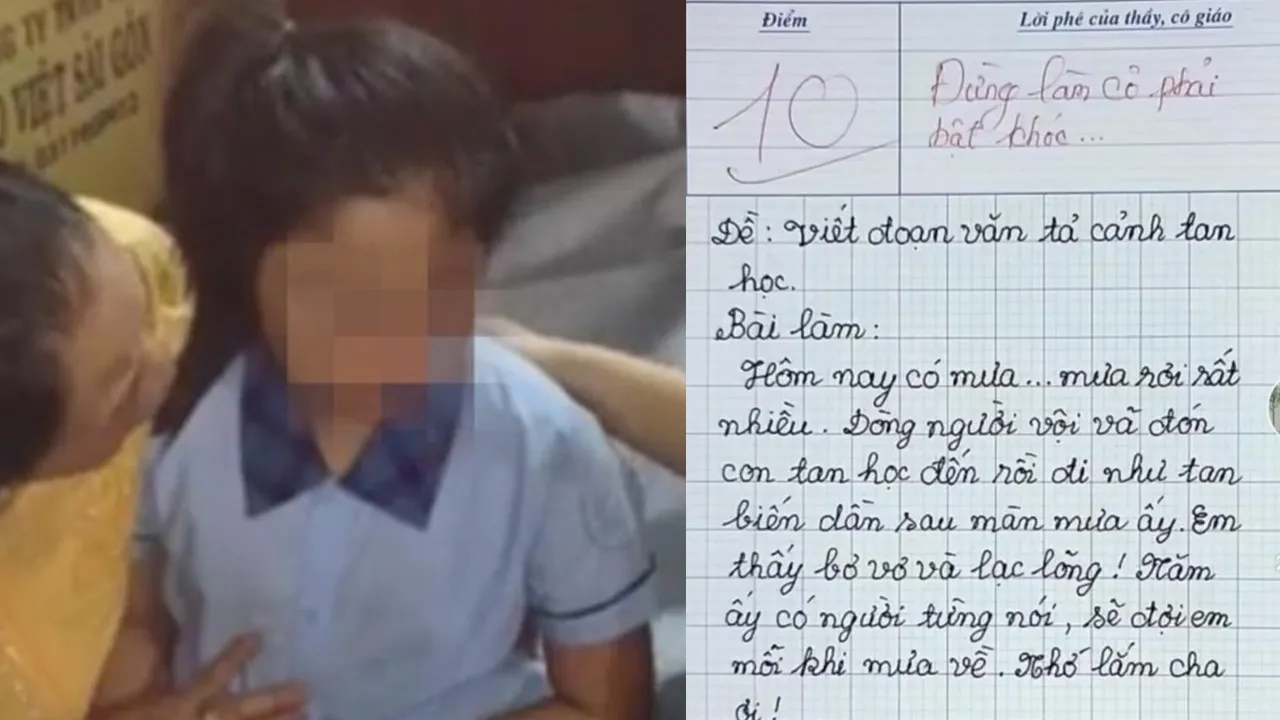 VIỆT SÀI GÒN
Điểm
Lời phê của thầy, cô giáo
10
Đừng làm cô phải
bật khóc...
Đề: Viết đoạn văn tả cảnh tan
học.
Bài làm:
Hôm nay có mưa... mưa rơi rất
nhiều. Dòng người vội vã đón
con tan học đến rồi đi như tan
biến dần sau màn mưa ấy. Em
thấy bơ vơ và lạc lõng! Năm
ấy có người từng nói, sẽ đợi em
mỗi khi mưa về. Nhớ lắm cha
ơi!